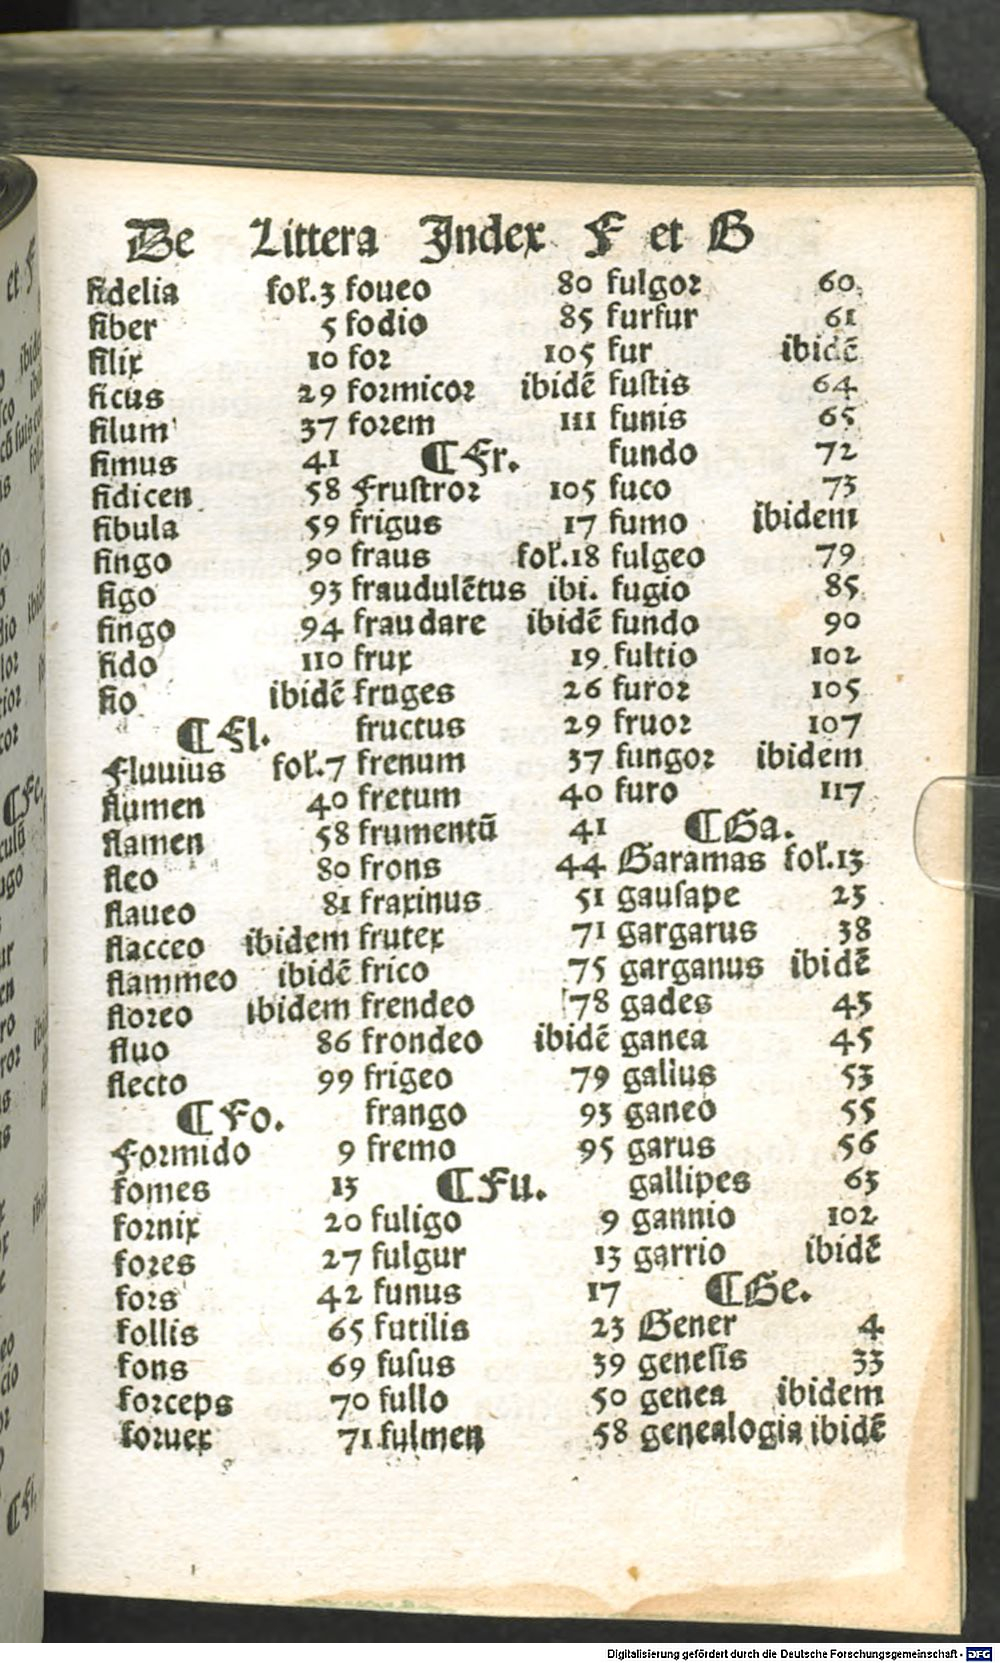 De Littera Index F et G
fidelia fol.3
fiber 5
filix 10
ficus 29
filum 37
fimus 41
fidicen 58
fibula 59
fingo 90
figo 93
fingo 94
fido 110
fio ibidē
¶ Fl.
Fluuius fol.7
flumen 40
flamen 58
fleo 80
flaueo 81
flacceo ibidem
flammeo ibidē
floreo ibidem
fluo 86
flecto 99
¶ Fo.
Formido 9
fomes 13
fornix 20
fores 27
fors 42
follis 65
fons 69
forceps 70
foruex 71
foueo 80
fodio 85
for 105
formicor ibidē
forem 111
¶ Fr.
Frustror 105
frigus 17
fraus fol.18
fraudulētus ibi.
fraudare ibidē
frux 19
fruges 26
fructus 29
frenum 37
fretum 40
frumentū 41
frons 44
fraxinus 51
frutex 71
frico 75
frendeo 78
frondeo ibidē
frigeo 79
frango 93
fremo 95
¶ Fu.
fuligo 9
fulgur 13
funus 17
futilis 23
fusus 39
fullo 50
fulmen 58
fulgor 60
furfur 61
fur ibidē
fustis 64
funis 65
fundo 72
fuco 73
fumo ibidem
fulgeo 79
fugio 85
fundo 90
fultio 102
furor 105
fruor 107
fungor ibidem
furo 117
¶ Ga.
Garamas fol.13
gausape 23
gargarus 38
garganus ibidē
gades 43
ganea 45
gallus 53
ganeo 55
garus 56
gallipes 63
gannio 102
garrio ibidē
¶ Ge.
Gener 4
genesis 33
genea ibidem
genealogia ibidē
Digitalisierung gefördert durch die Deutsche Forschungsgemeinschaft - DFG